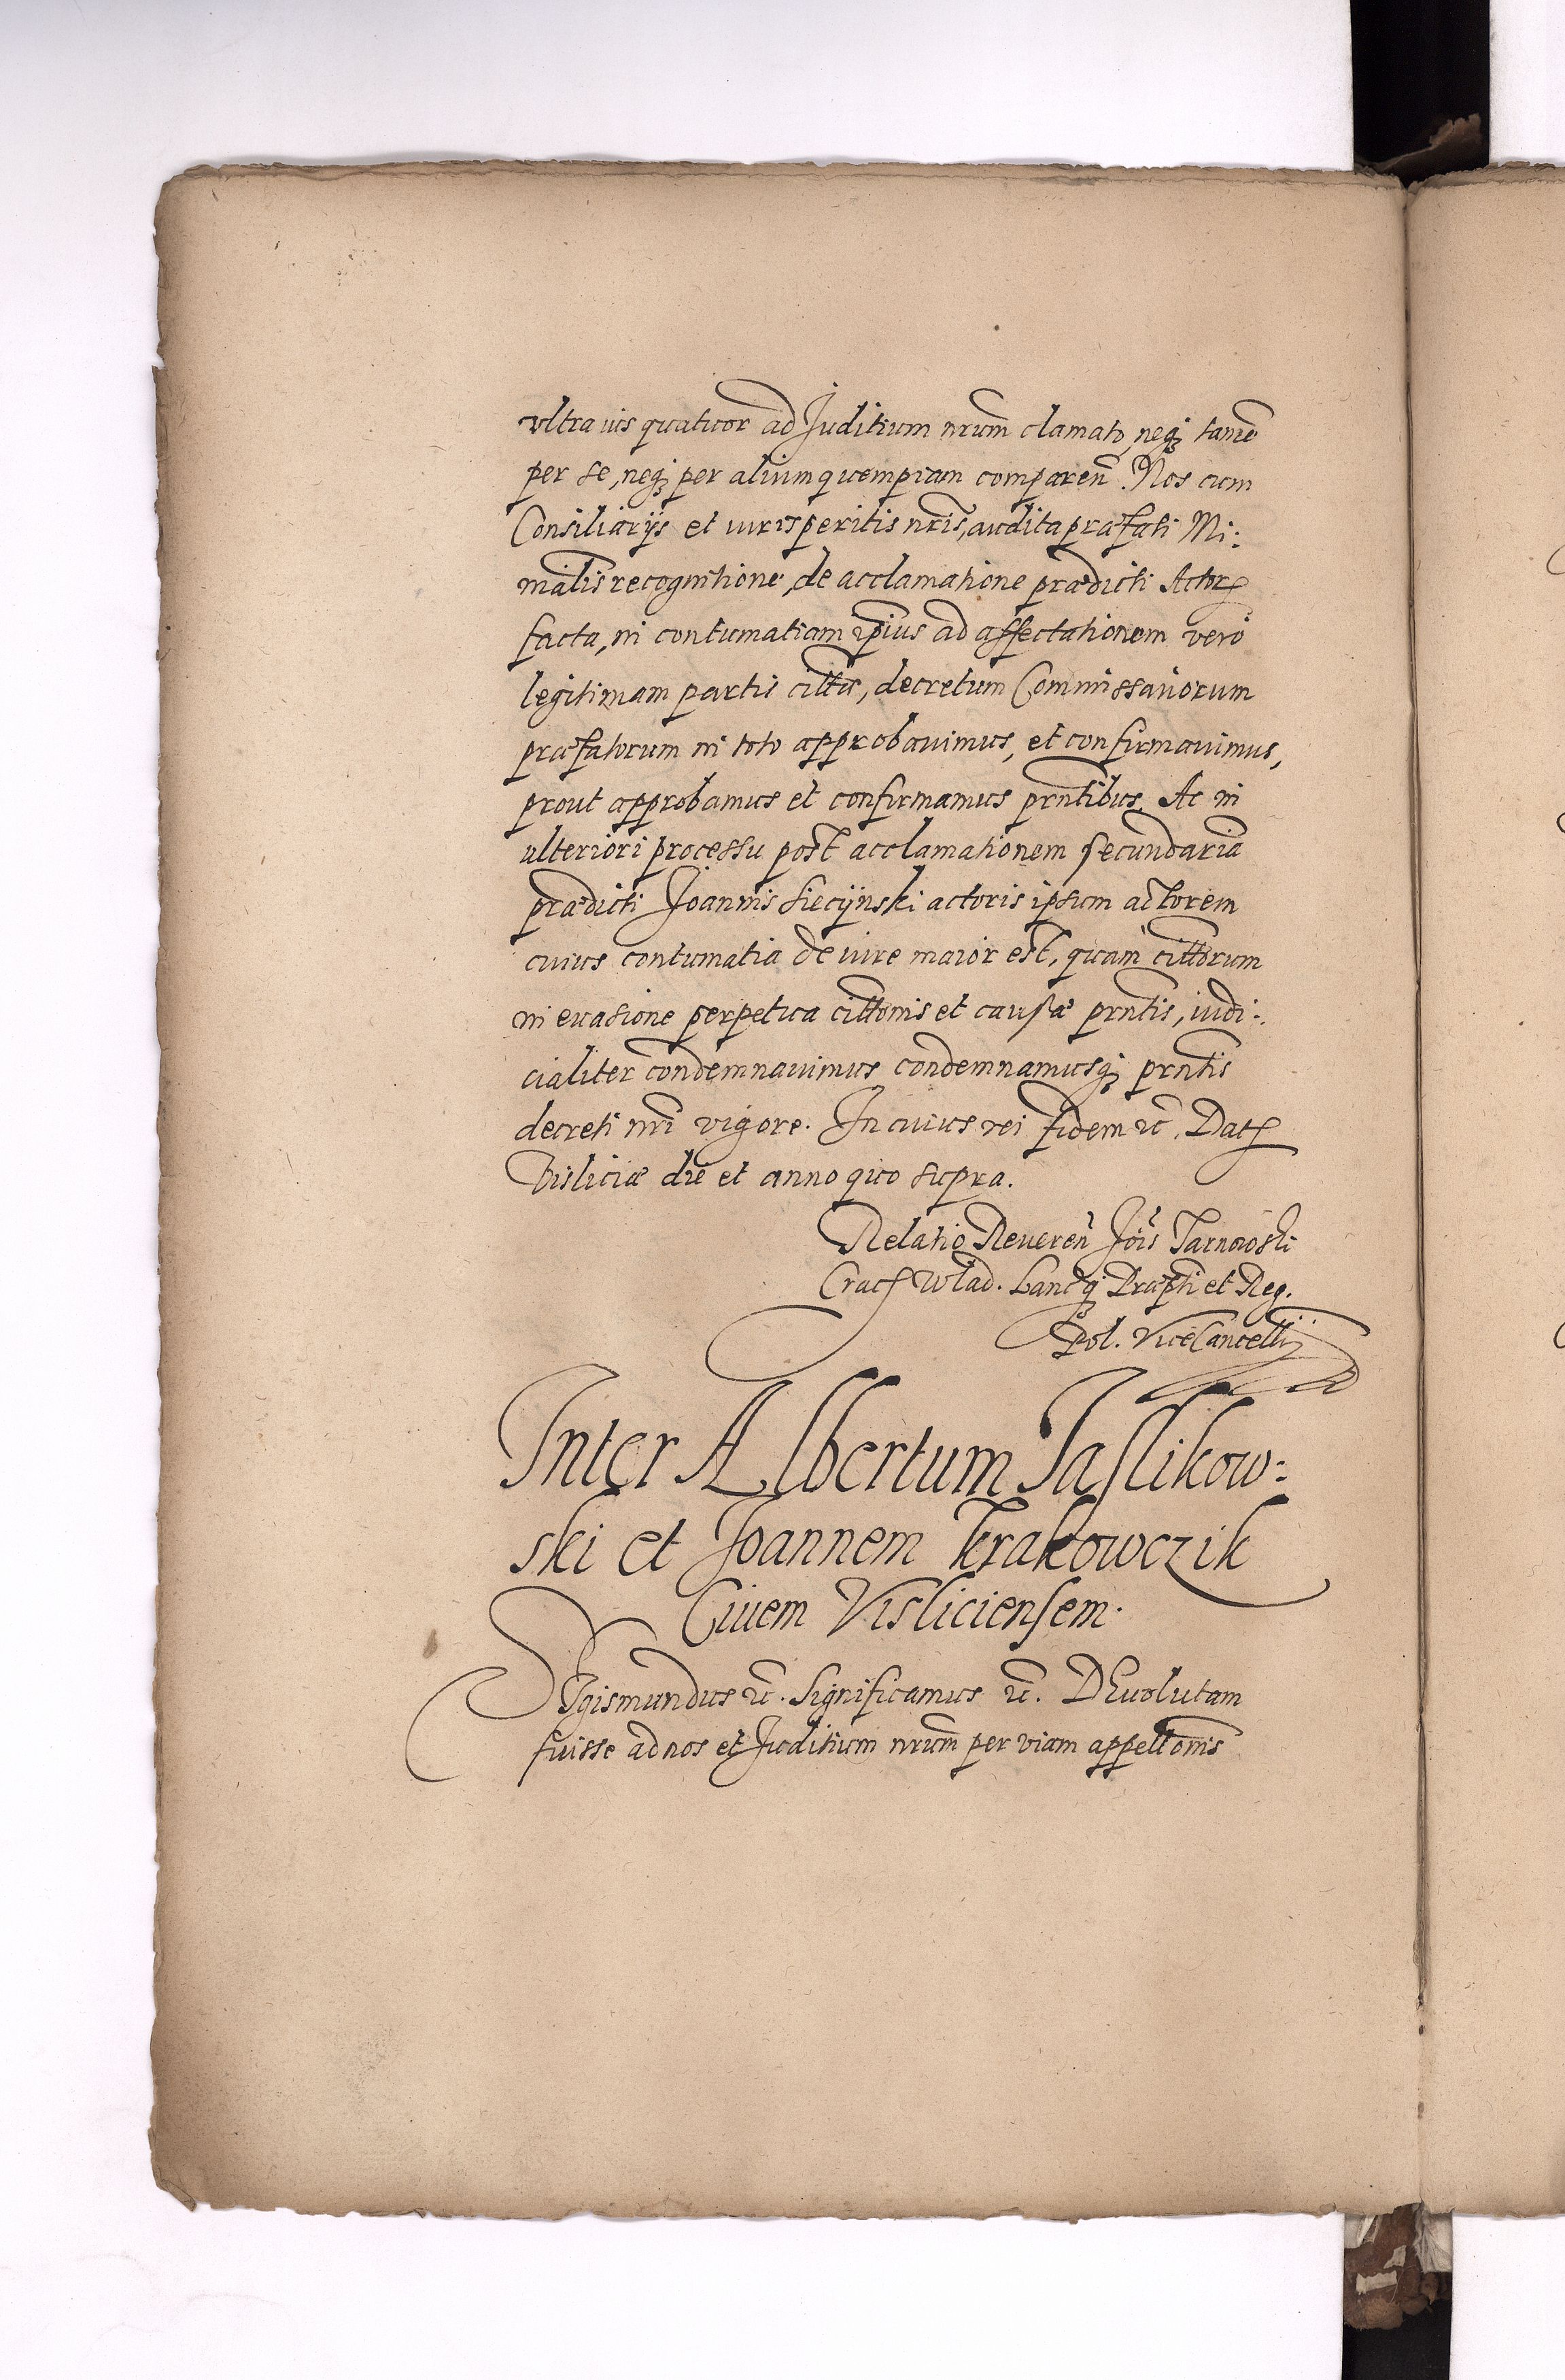 vltra uis quatuor ad Juditium nrūm clamato, neqꝫ tamē
per se, neqꝫ per alium quempiam comparen̄. Nos cum
Consiliarijs et iurisperitis nrīs, audita præfati Mi:
niālis recognitione, de acclamatione prædicti Actorꝭ
facta, in contumatiam ip̄ius ad affectationem vero
legitimam partis cittæ, decretum Commissariorum
præfatorum in toto approbauimus, et confirmauimus,
prout approbamus et confirmamus prn̄tibus. Ac in
ulteriori processu post acclamationem secundariā
prædicti Joannis Siecijnski actoris ipsum actorem
cuius contumatia de iure maior est, quam cittōrum
in euasione perpetua cittōnis et causæ prn̄tis, iudi:
cialiter condemnauimus condemnamusqꝫ prn̄tis
decreti nrī vigore. In cuius rei fidem ꝛc̄. Datꝭ
Visliciæ die et anno quo supra.
Relatio Reueren̄ Jois̄ Tarnowski
Cracꝭ Wlad. Lanc̄qꝫ Præpti et Reg.
Pol. ViceCancellij
Inter Albertum Jaslikow:
ski et Joannem Krakowczik
Ciuem Visliciensem.
Sigismundus ꝛc̄. Significamus ꝛc̄. DEuolutam
fuisse ad nos et Juditium nrūm per viam appellōnis